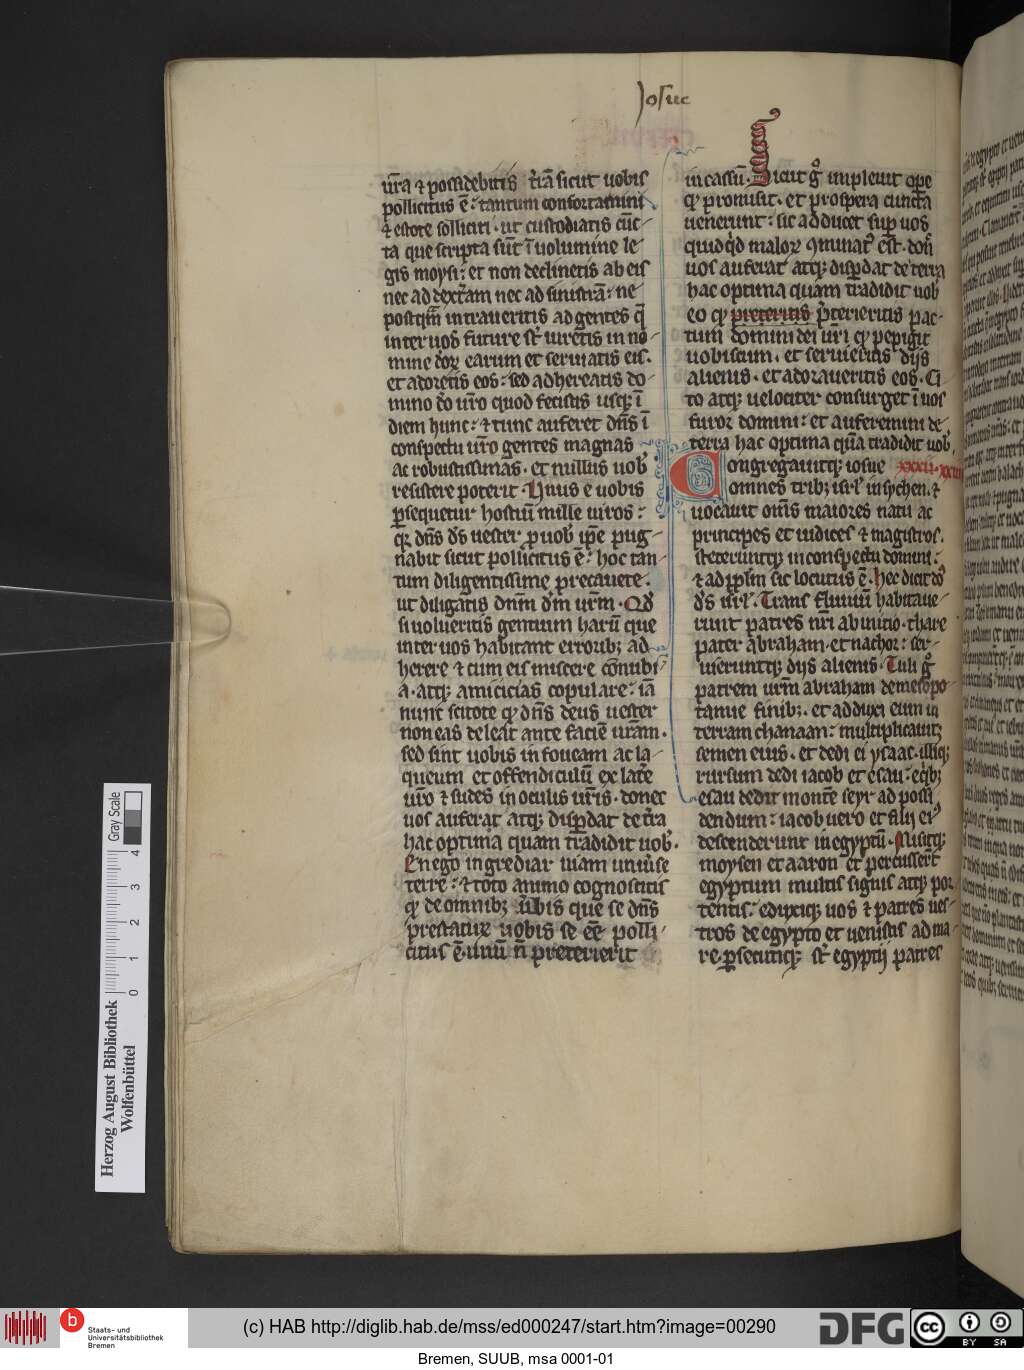 Josue
ur̄a ⁊ possidebitis t̾rā sicut uobis
pollicitus ē: tantum confortamini
⁊ estote solliciti. ut custodiatis cūc-
ta que scripta sūt ī uolumine le-
gis moysi: et non declinetis ab eis
nec ad dext̾am nec ad sinistrā: ne
postqm̄ intraueritis ad gentes q̄
inter uos future st̾ iuretis in no-
mine deoꝝ earum et seruiatis eis.
et adoretis eos: sed adhereatis do-
mino dō ur̄o quod fecistis usqꝫ ī
diem hunc: ⁊ tunc auferet dn̄s ī
conspectu ur̄o gentes magnas
ac robustissimas. et nullus uob̾
resistere poterit. Unus e uobis
ꝑsequetur hostiū mille uiros:
qꝛ dn̄s d̄s uester ꝓ uob̾ ip̄e pug-
nabit sicut pollicitus ē: hoc tan-
tum diligentissime precauete.
ut diligatis dnm̄ dm̄ urm̄. Qd̾
si uolueritis gentium harū que
inter uos habitant erroribꝫ ad-
herere ⁊ cum eis miscere cōnubi-
a. atqꝫ amicicias copulare: iā
nunc scitote ꝙ dn̄s deus uester
non eas deleat ante faciē urām.
sed sint uobis in foueam ac la-
queum et offendiculū ex late
ur̄o ⁊ sudes in oculis ur̄is. donec
uos auferat atqꝫ disꝑdat de t̾ra
hac optima quam tradidit uob̾.
En ego ingrediar uiam uniūse
terre: ⁊ toto animo cognoscitis
ꝙ de omnibꝫ ūbis que se dn̄s
prestaturꝫ uobis se eē polli-
citus ē. unū n̄ preterierit
in cassū. Sicut g̊ impleuit oꝑe
ꝙ promisit. et prospera cuncta
uenerunt: sic adducet suꝑ uos
quidq̇d maloꝝ ꝯminat̾ est. donc̄
uos auferat atqꝫ disꝑdat de terra
hac optima quam tradidit uob̾
eo ꝙ preteritis p̄terieritis pac-
tum domini dei ur̄i ꝙ pepigit
uobiscum. et seruieritis dijs
alienis. et adoraueritis eos. Ci-
to atqꝫ uelociter consurget ī uos
furor domini: et auferemini de
terra hac optima quā tradidit uob̾.
Congregauitqꝫ iosue xxiiii. xxiii
omnes tribꝫ isrl̾ in sychen. ⁊
uocauit om̄s maiores natu ac
principes et iudices ⁊ magistros.
steteruntqꝫ in conspectu domini:
⁊ ad ppl̄m sic locutus ē. Hec dicit do̾
d̄s isrl̾. Trans fluuiū habitaue-
runt patres nr̄i ab inicio. thare
pater abraham. et nachor: ser-
uieruntqꝫ dijs alienis. Tuli g̊
patrem urm̄ abraham de mesopo-
tamie finibꝫ. et adduxi eum in
terram chanaan: multiplicauitꝫ
semen eius. et dedi ei ysaac. illiqꝫ
rursum dedi iacob et esau: eq̇bꝫ
esau dedit monte seyr ad possi-
dendum: iacob uero et filij ei᾿
descenderunt in egyptū. Misitqꝫ
moysen et aaron et percussert̄
egyptum multis signis atqꝫ por-
tentis: eduxiqꝫ uos ⁊ patres ues-
tros de egypto et uenistis ad ma-
re. ꝑsecutiqꝫ st̾ egyptij patres
Gray Scale
0 1 2 3 4
Herzog August Bibliothek
Wolfenbüttel
b
Staats- und
Universitätsbibliothek
Bremen
(c) HAB http://diglib.hab.de/mss/ed000247/start.htm?image=00290
DFG
cc BY SA
Bremen, SUUB, msa 0001-01